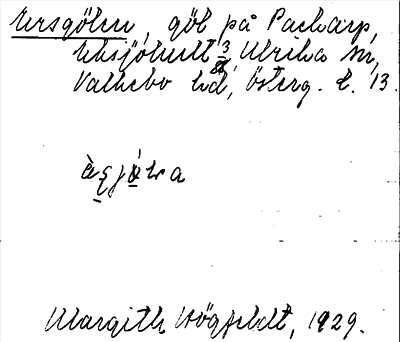 Ersgölen, göl på Packarp,
Eksjöhult 3/8, Ulrika sn,
Valkebo hd, Österg. l. 13.
Margith Högfeldt, 1929.